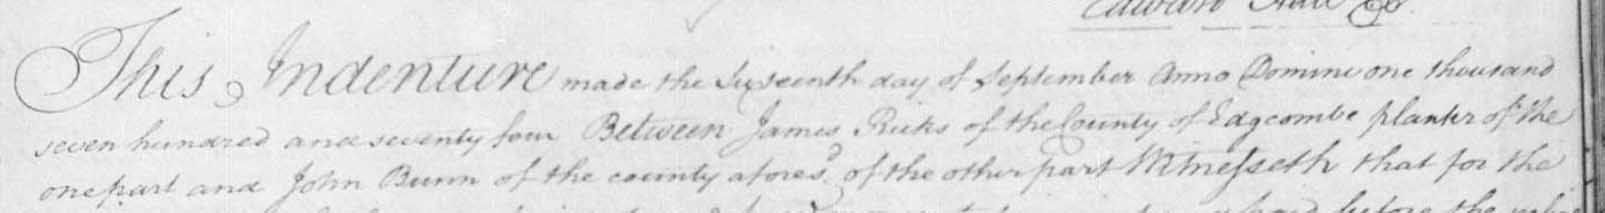 Edward Hall
This Indenture made the Sixteenth day of September Anno Domini one thousand
seven hundred and seventy four Between James Ricks of the County of Edgcombe planter of the
one part and John Bunn of the county afores.d of the other part Witnesseth that for the
before the